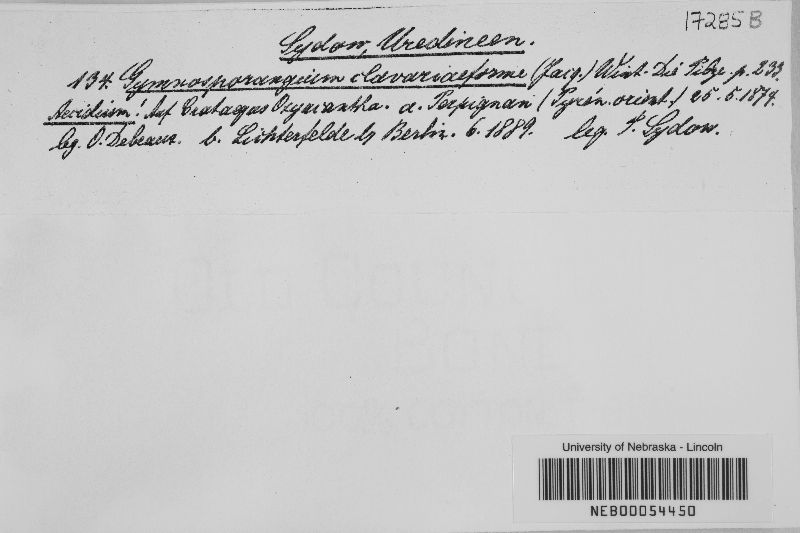 17285B
Sydow, Uredineen.
134. Gymnosporangium clavariaeforme (Jacq.) Wint. Die Pilze p. 233.
Aecidium! Auf Crataegus Oxyacantha. a. Perpignan (Pyrén. orient.) 25. 5. 1874.
leg. O. Debeaux. b. Lichterfelde b/ Berlin. 6. 1889. leg. P. Sydow.
University of Nebraska - Lincoln
NEB00054450